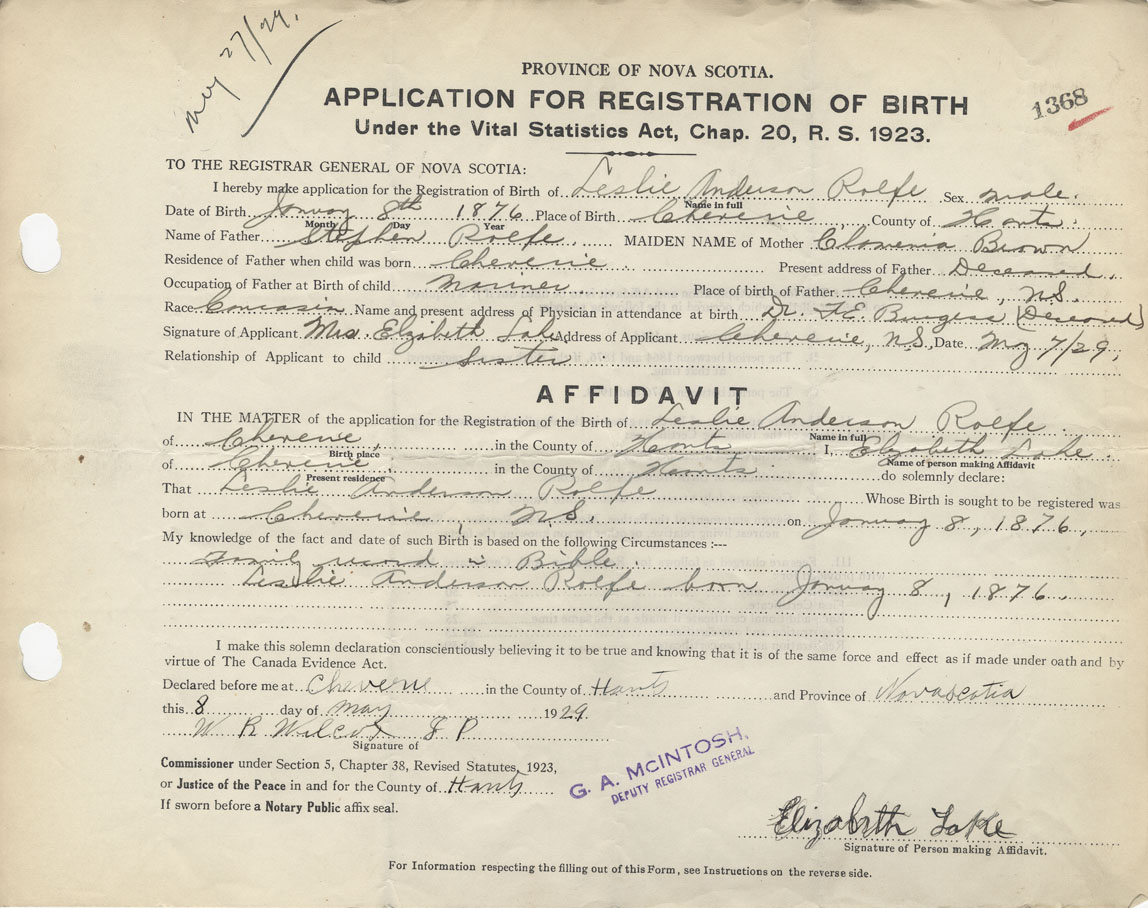 May 27/29.
PROVINCE OF NOVA SCOTIA.
1368
APPLICATION FOR REGISTRATION OF BIRTH
Under the Vital Statistics Act, Chap. 20, R. S. 1923.
TO THE REGISTRAR GENERAL OF NOVA SCOTIA:
I hereby make application for the Registration of Birth of Leslie Anderson Rolfe Sex male.
Name in full
Date of Birth January 8th 1876 Place of Birth Cheverie, County of Hants.
Month Day Year
Name of Father Stephen Rolfe. MAIDEN NAME of Mother Brown
Residence of Father when child was born Cheverie. Present address of Father Deceased.
Occupation of Father at Birth of child Mariner. Place of birth of Father Cheverie, N.S.
Race Name and present address of Physician in attendance at birth Dr. F.E. Burgess (Deceased)
Signature of Applicant Mrs. Elizabeth Lake Address of Applicant Cheverie, N.S., Date May 7/29,
Relationship of Applicant to child Sister
AFFIDAVIT
IN THE MATTER of the application for the Registration of the Birth of Leslie Anderson Rolfe.
Name in full
of Cheverie, in the County of Hants I, Elizabeth Lake.
Birth place
Name of person making Affidavit
of Cheverie, in the County of Hants. do solemnly declare:
Present residence
That Leslie Anderson Rolfe Whose Birth is sought to be registered was
born at Cheverie, N.S. on January 8, 1876,
My knowledge of the fact and date of such Birth is based on the following Circumstances :--
Family record in Bible.
Leslie Anderson Rolfe born January 8, 1876.
I make this solemn declaration conscientiously believing it to be true and knowing that it is of the same force and effect as if made under oath and by
virtue of The Canada Evidence Act.
Declared before me at Cheverie in the County of Hants and Province of Novascotia
this 8 day of may 1929.
W R Wilcox J P
Signature of
Commissioner under Section 5, Chapter 38, Revised Statutes, 1923,
or Justice of the Peace in and for the County of Hants
If sworn before a Notary Public affix seal.
G. A. McINTOSH,
DEPUTY REGISTRAR GENERAL
Elizabeth Lake
Signature of Person making Affidavit.
For Information respecting the filling out of this Form, see Instructions on the reverse side.